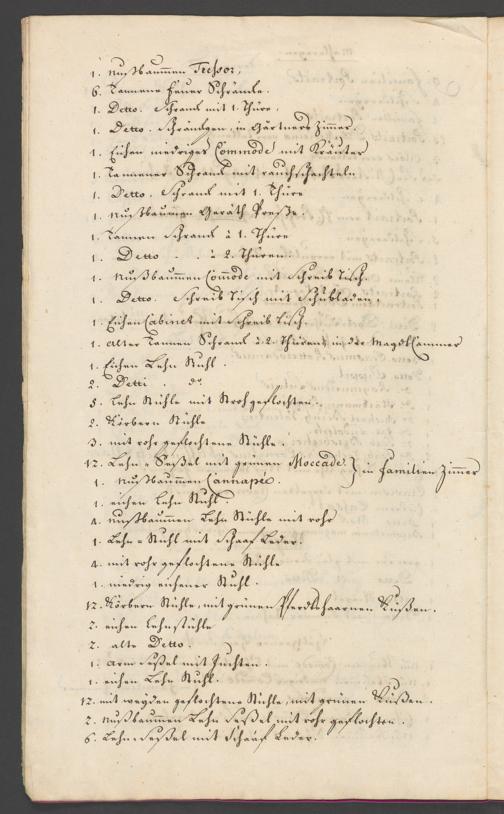 1. Nußbaummen Tresor,
6. Tannene feuer Schräncke.
1. Detto. Schranck mit 1. Thüre.
1. Detto. Schränckgen, in Gärtners Zimmer.
1. Eichen niedriges Commode mit Kräuter
1. Tannener Schranck mit rauchschachteln
1. Detto. Schranck mit 1. Thüre
1. Nußbaumen Geräth Preße.
1. Tannen Schranck à 1. Thüre
1. Detto . . à 2. Thüren.
1. Nußbaummen Com̄ode mit Schreib Tisch.
1. Detto. Schreib Tisch mit Schubladen.
1. Eichen Cabinet mit Schreib Tisch.
1. alter Tannen Schranck à 2. Thüren, in der Magdt Cammer
1. Eichen Lehn Stuhl.
2. Detti . do.
5. Lehn Stühle mit Stroh geflochten.
2. Körbern Stühle
3. mit rohr geflochtene Stühle.
12. Lehn-Seßel mit grünen Moccade. } in familien Zimmer
1. Nußbaummen Cannapée.
1. eichen Lehn Stuhl
4. Nußbaummen Lehn Stühle mit rohr
1. Lehn-Stuhl mit Schaaf Leder.
4. mit rohr geflochtene Stühle
1. niedrig eichener Stuhl.
12. Körbern Stühle, mit grünen Pferdtshaarnen Küßen.
2. eichen Lehnstühle
2. alte Detto.
1. arm Seßel mit Juchten.
1. eichen Lehn Stuhl.
12. mit weyden geflochtene Stühle, mit grünen Küßen.
2. Nußbaummen Lehn Seßel mit rohr geflochten.
6. Lehn-Seßel mit Schaaf Leder.